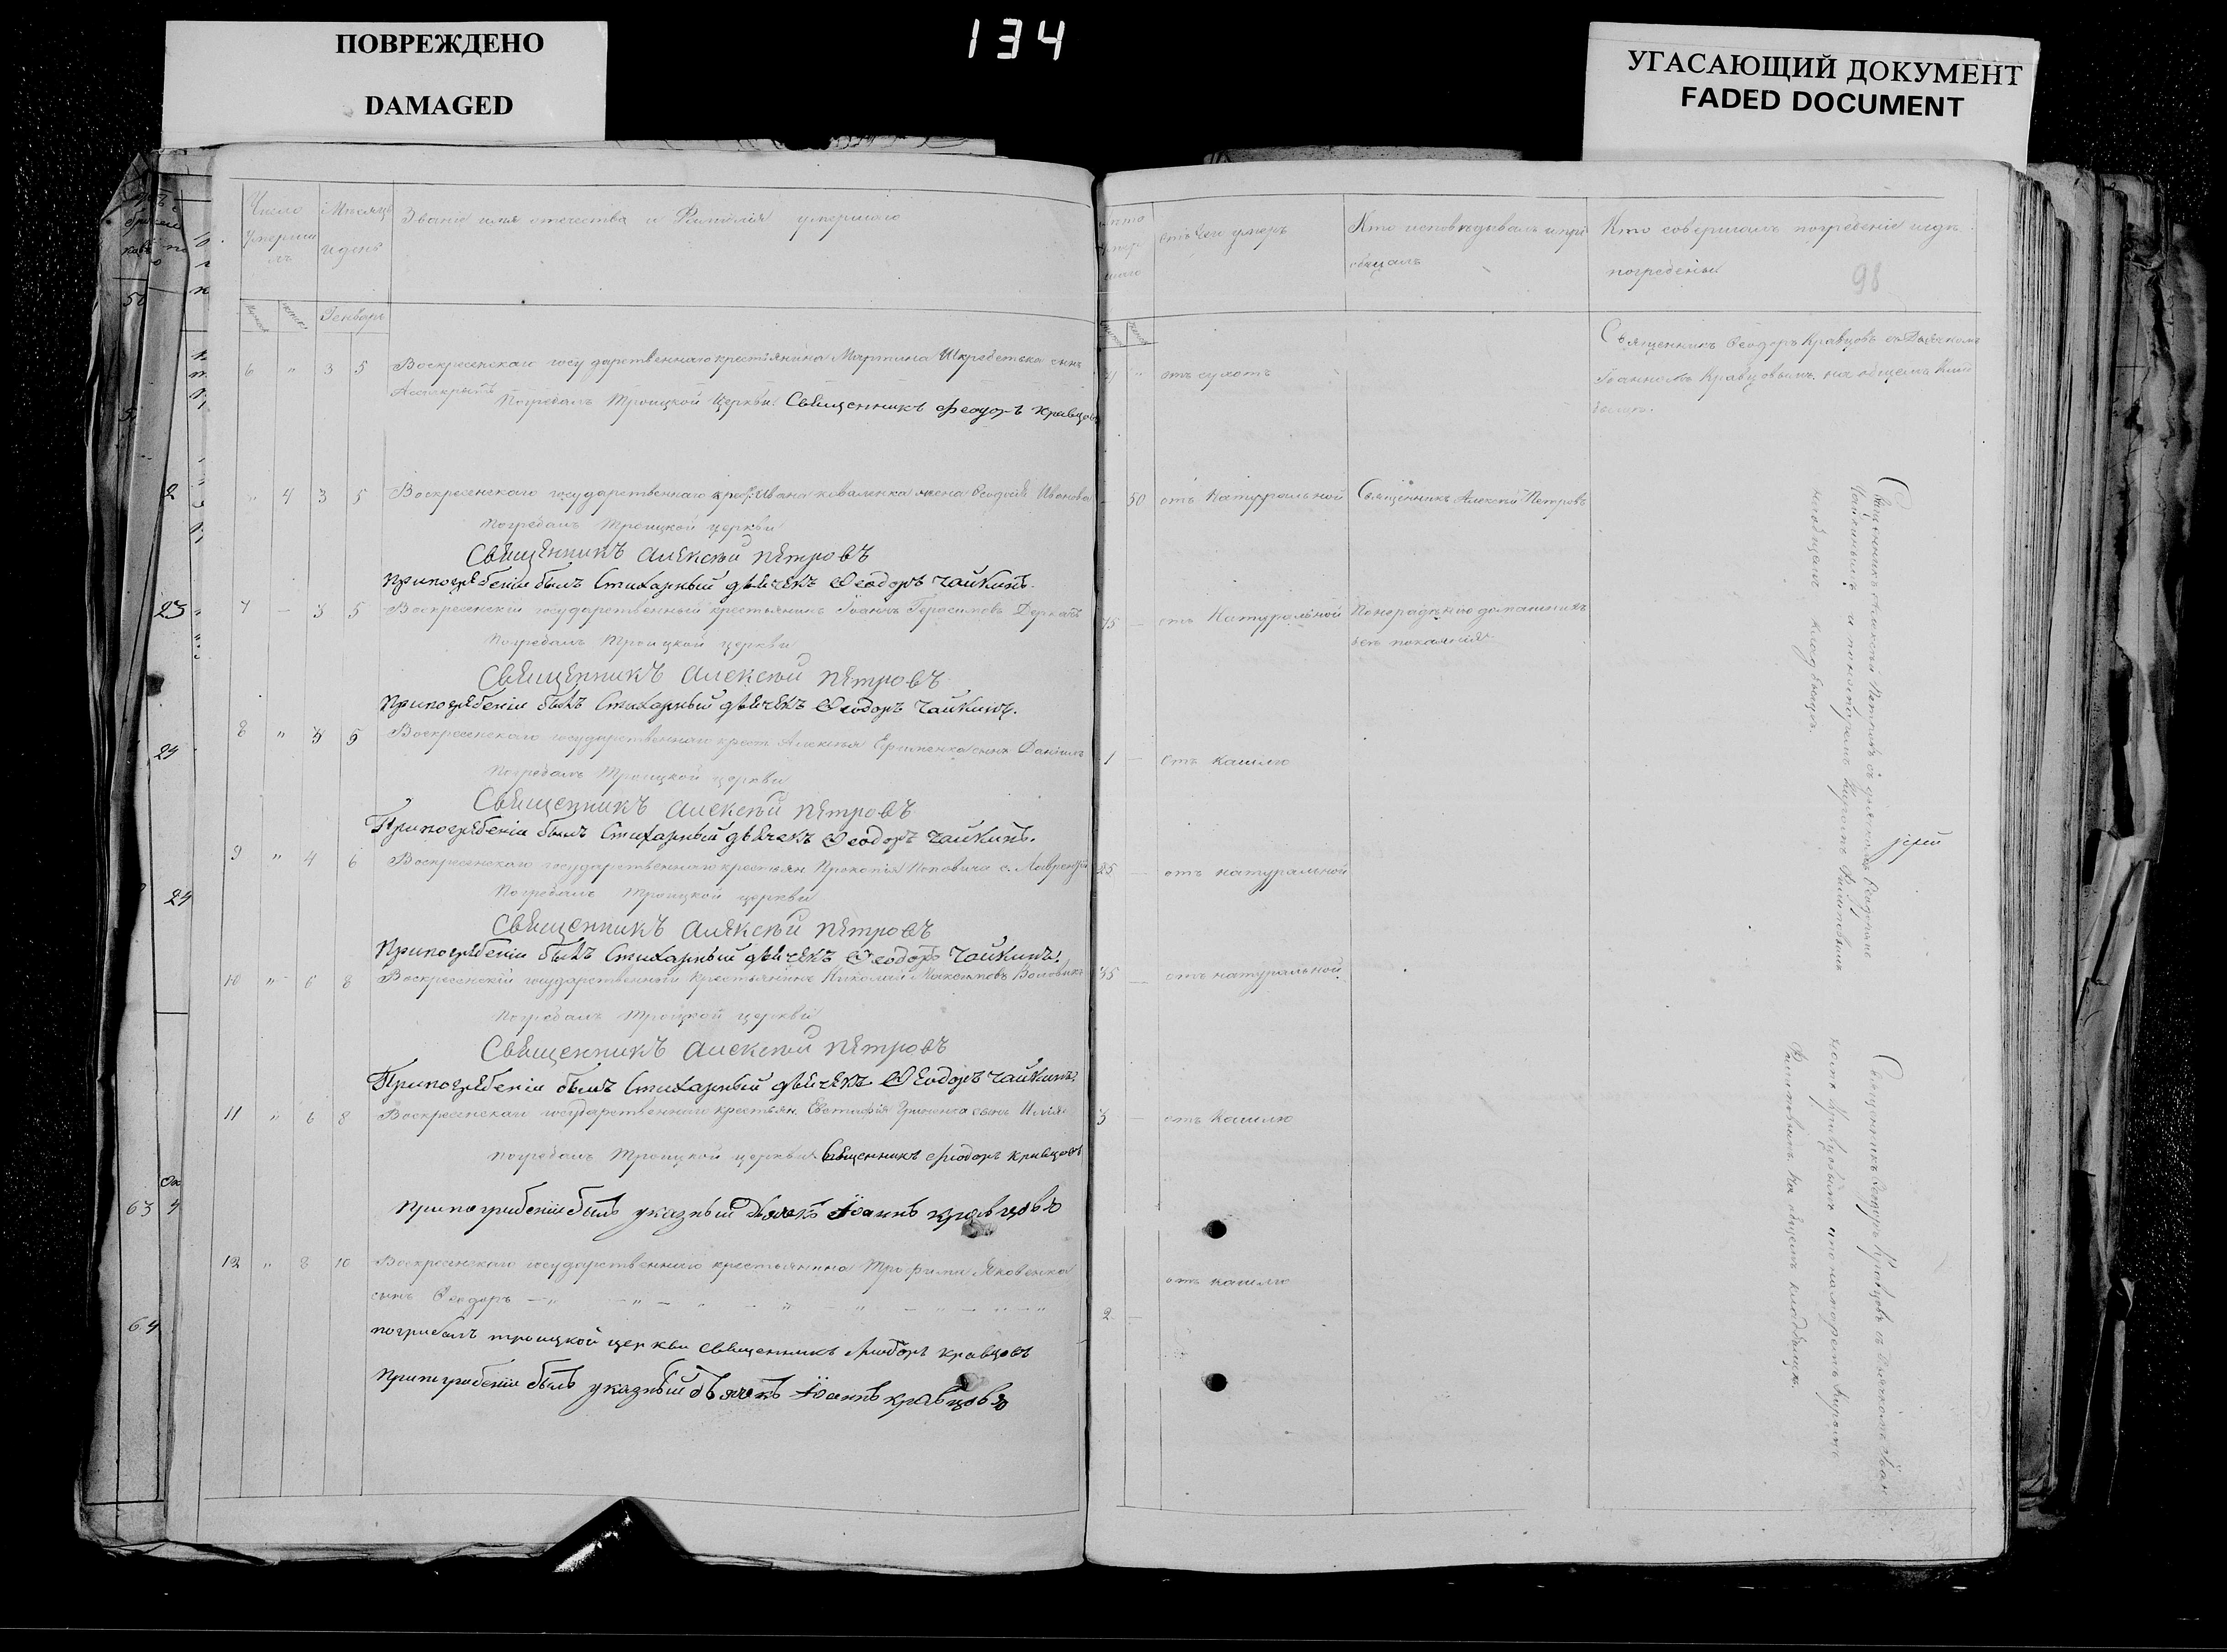 ПОВРЕЖДЕНО
DAMAGED
134
УГАСАЮЩИЙ ДОКУМЕНТ
FADED DOCUMENT
Число умерши мъ
Мѣсяцъ и день
Званіе имя отечество и Фамилія умершаго
отъ чего умеръ
Кто исповѣдывалъ и прі общалъ
Кто совершалъ погребеніе и гдѣ погребены
98
Генваръ
6 " 3 5 Воскресенскаго государственнаго крестьянина Мартина Шкребетька сынъ
отъ сухотъ
Священникъ Ѳеодоръ Кравцовъ съ Дьячкомъ
Іоанномъ Кравцовымъ на общемъ Клад
бищѣ.
Погребалъ Троицкой Церкви Священникъ Феодоръ Кравцовъ
" 4 3 5 Воскресенскаго государственнаго крес: Ивана Коваленка жена Ѳеодосія Иванова
50 отъ Натуральной
Священникъ Алексѣй Петровъ
Погребалъ Троицкой церкви
Священникъ Алексѣй Петровъ
При погребеніи былъ Стихарный дьячекъ Ѳеодоръ Чайкинъ.
7 — 3 5 Воскресенскій государственный крестьянинъ Іоаннъ Герасимовъ Деркачъ
75 — отъ Натуральной
По нерадѣнію домашнихъ
безъ покаянія
Погребалъ Троицкой церкви
Священникъ Алексѣй Петровъ
При погребеніи былъ Стихарный дьячекъ Ѳеодоръ Чайкинъ.
8 " 3 5 Воскресенскаго государственнаго крест Алексѣя Ефименка сынъ Даніилъ
1 — отъ кашлю
Погребалъ Троицкой церкви
Священникъ Алексѣй Петровъ
При погребеніи былъ Стихарный дьячекъ Ѳеодоръ Чайкинъ.
9 " 4 6 Воскресенскаго государственнаго крестьян Прокопія Поповича с. Лаврентій
25 — отъ натуральной
Погребалъ Троицкой церкви
Священникъ Алексѣй Петровъ
При погребеніи былъ Стихарный дьячекъ Ѳеодоръ Чайкинъ.
10 " 6 8 Воскресенскій государственный Крестьянинъ Николай Максимовъ Воловикъ
35 — отъ натуральной
Погребалъ Троицкой церкви
Священникъ Алексѣй Петровъ
При погребеніи былъ Стихарный дьячекъ Ѳеодоръ Чайкинъ.
11 " 6 8 Воскресенскаго государственнаго крестьян. Евстафія Гриненка сынъ Илія
3 — отъ Кашлю
Погребалъ Троицкой церкви Священникъ Феодоръ Кравцовъ
При погребеніи былъ указный Дьячекъ Іоаннъ Кравцовъ
12 " 8 10 Воскресенскаго государственнаго крестьянина Трофима Яковенка
отъ кашлю
сынъ Ѳеодоръ
2 —
погребалъ троицкой церкви священникъ Феодоръ Кравцовъ
При погребеніи былъ указный дьячекъ Іоаннъ Кравцовъ
Священникъ Алексѣй Петровъ съ дьячкомъ Ѳеодоромъ
Чайкинымъ и пономаремъ
на общемъ кладбищѣ.
Священникъ Ѳеодоръ Кравцовъ съ Дьячкомъ Іоан
номъ Кравцовымъ и пономаремъ
на общемъ кладбищѣ.